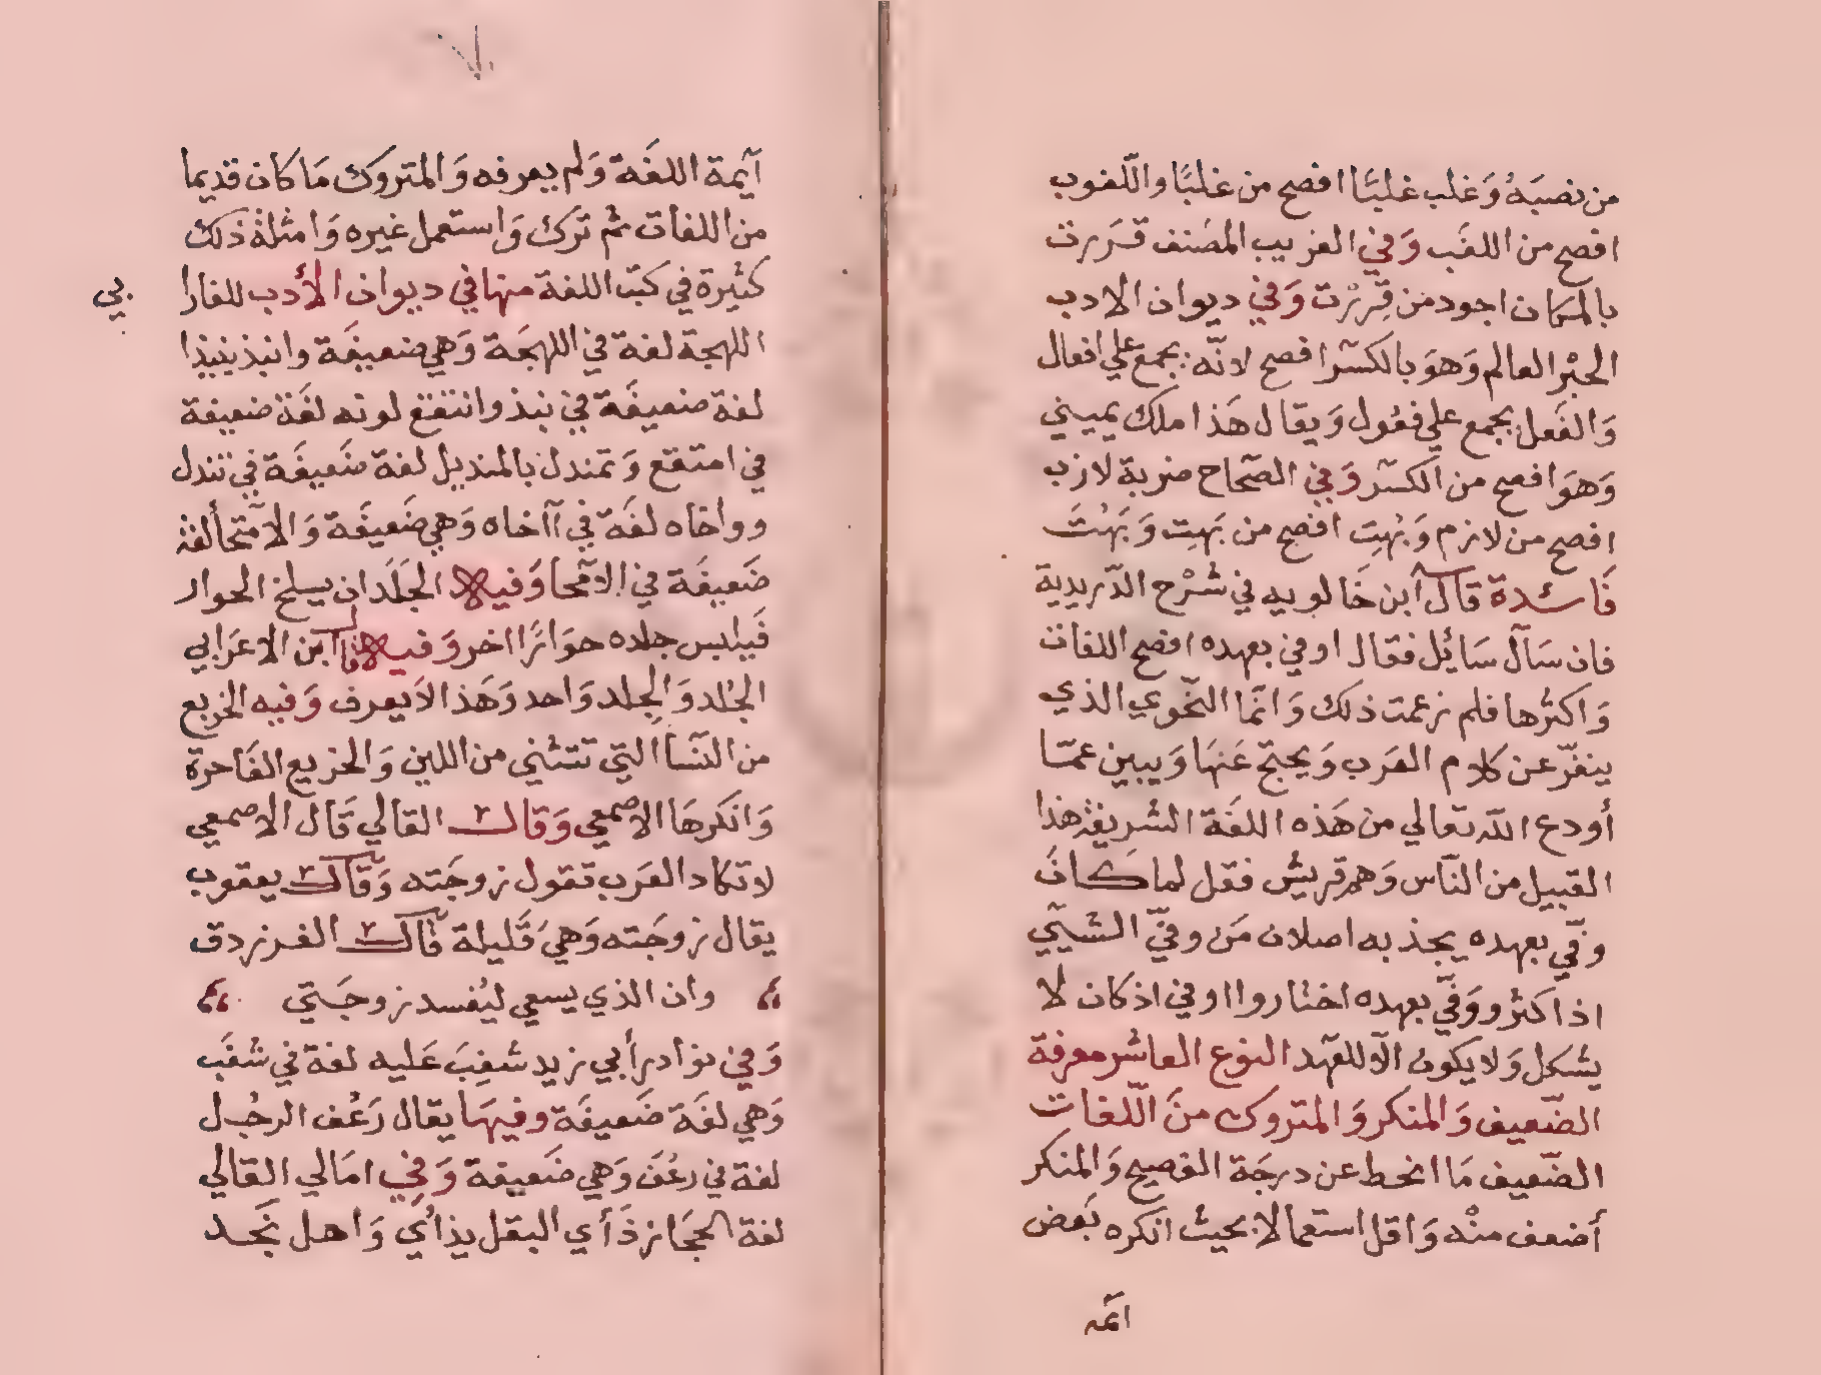 من نصبَهُ وَغلب غلبًا افصح من غلبًا واللّغوب
افصح من اللغَب وَفي الغريب المصَنف قَررت
بالمكان اجود من قِرِرْت وَفي ديوان الادب
الحبْر العالم وَهوَ بالكسَر افصح لانّه يجمع علي افعال
وَالفَعل يجمع علي فعُول وَيقال هَذا ملك يميني
وَهوَ افصح من الكسَر وَفي الصّحاح ضربة لازب
افصح من لازم وَبُهِت افصح من بَهِت وَبَهُتَ
فَائدة قال ابن خَالويه في شَرْح الدّريدية
فان سَآل سَائِل فقال اوفي بعهده افصح اللغات
وَاكثرها فلم زعمت ذلك وَانّما النّحوي الذي
ينقّر عن كلام العَرب وَيحتج عَنهَا وَيبين عمّا
أودع اللّه تعالي من هَذه اللغَة الشريفة هذا
القبيل من النّاس وَهم قريش فقل لما كانَ
وفّي بعهده يجذبه اصلان مَن وفيّ الشَيّي
اذا كثر ووَفّي بعهده اختاروا اوفي اذ كان لا
يشكل وَلا يكون الّا للعَهد النوع العاشر معرفة
الضّعيف وَالمنكر وَالمتروك منَ اللّغات
الضّعيف مَا انحط عن درجَة الفصيح وَالمنكر
أضعف منْه وَاقل استعمالا بحيث انكره بَعض
ائمَه
آيمة اللغَة وَلم يعرفه وَالمتروك مَا كان قديما
من اللغات ثم ترك وَاستعمل غيره وَامثلة ذلك
كثيرة في كتب اللغة منها في ديوان الأدب للفارا
بي
اللهجة لغة في اللهجَة وَهي ضعيفَة وانبذ ينبذا
لغة ضعيفَة في نبذ وانتقع لونه لغَة ضعيفة
في امتقع وَتمندل بالمنديل لغة ضَعيفَة في تندل
وواخاه لغَة في آاخاه وَهي ضَعيفَة وَالامتحا لغة
ضَعيفَة في الامّحا وَفيها الجَلَد ان يسلخ الحوار
فَيلبس جلده حوَارًا اخر وَفيها قال ابن الاعرَابي
الجَلد وَالجِلد وَاحد وَهَذا لاَ يعرف وَفيه الخريع
من النّسَا التي تتثني من اللين وَالخريع الفَاجرة
وَانكرهَا الاصمعي وَقال القالي قَال الاصمعي
لا تكاد العَرب تقول زوجَته وَقال يعقوب
يقال زوجَته وَهيَ قَليلة قال الفرزدق
وان الذي يسعي ليُفسد زوجَتي
وَفي نوادر أبي زيد شغِبَ عَليه لغة في شغَب
وَهي لغَة ضَعيفَة وفيهَا يقال رَعُف الرجُل
لغة في رعُفَ وَهي ضَعيفة وَفي امَالي القالي
لغة الحجَاز ذَأي البقل يذأي وَاهل نَجد